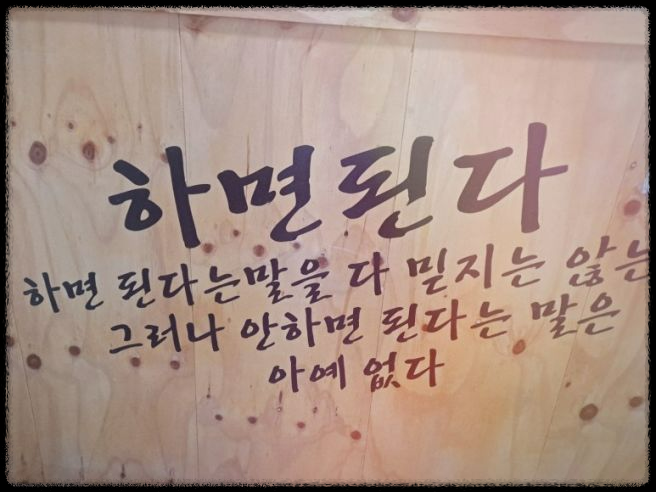 하면된다
하면 된다는말을 다 믿지는 않는
그러나 안하면 된다는 말은
아예 없다